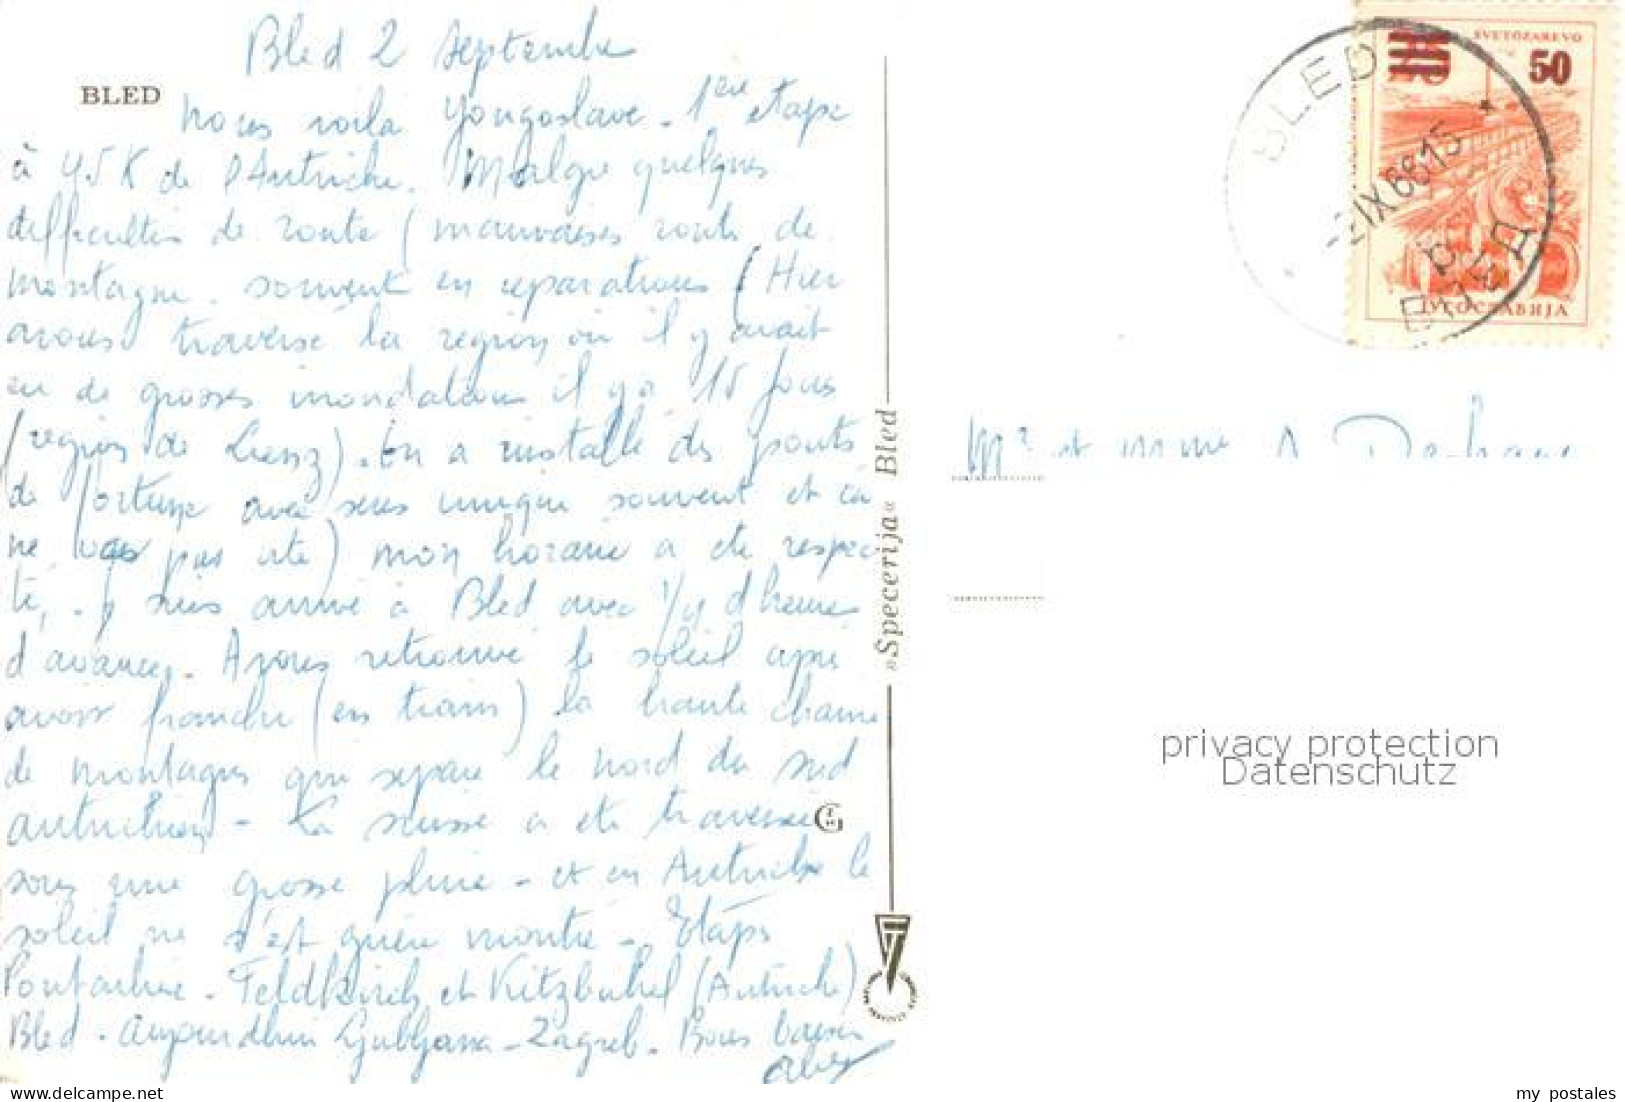 Bled 2 septembre
BLED
Nous voila Yougoslave - 1ère etape
à 45 K de l'Autriche. Malgre quelques
difficultes de route (mauvaises routes de
montagne. souvent en reparations (Hier
avons traverse la region ou il y avait
eu de grosses inondations il y a 15 jours
(region de Lienz). On a installe des ponts
de fortune avec sens unique souvent et ca
ne va pas vite) mon horaire a ete respec
té, - y suis arrive à Bled avec 1/4 d'heure
d'avance. Avons retrouve le soleil apres
avoir franchi (en train) la haute chaine
de montagnes qui separe le nord du sud
autrichien - La suisse a ete traversee
sous une grosse pluie - et en Autriche le
soleil ne s'est guere montre - Etapes
Pontarlier - Feldkirch et Kitzbuhel (Autriche)
Bled - aujourdhui Ljubljana - Zagreb. Bons baisers
»Specerija« Bled
SVETOZAREVO
50
ЈУГОСЛАВИЈА
BLED
-2IX6615
БЛЕД
Mr et Mme
privacy protection
Datenschutz
delcampe.net
my postales